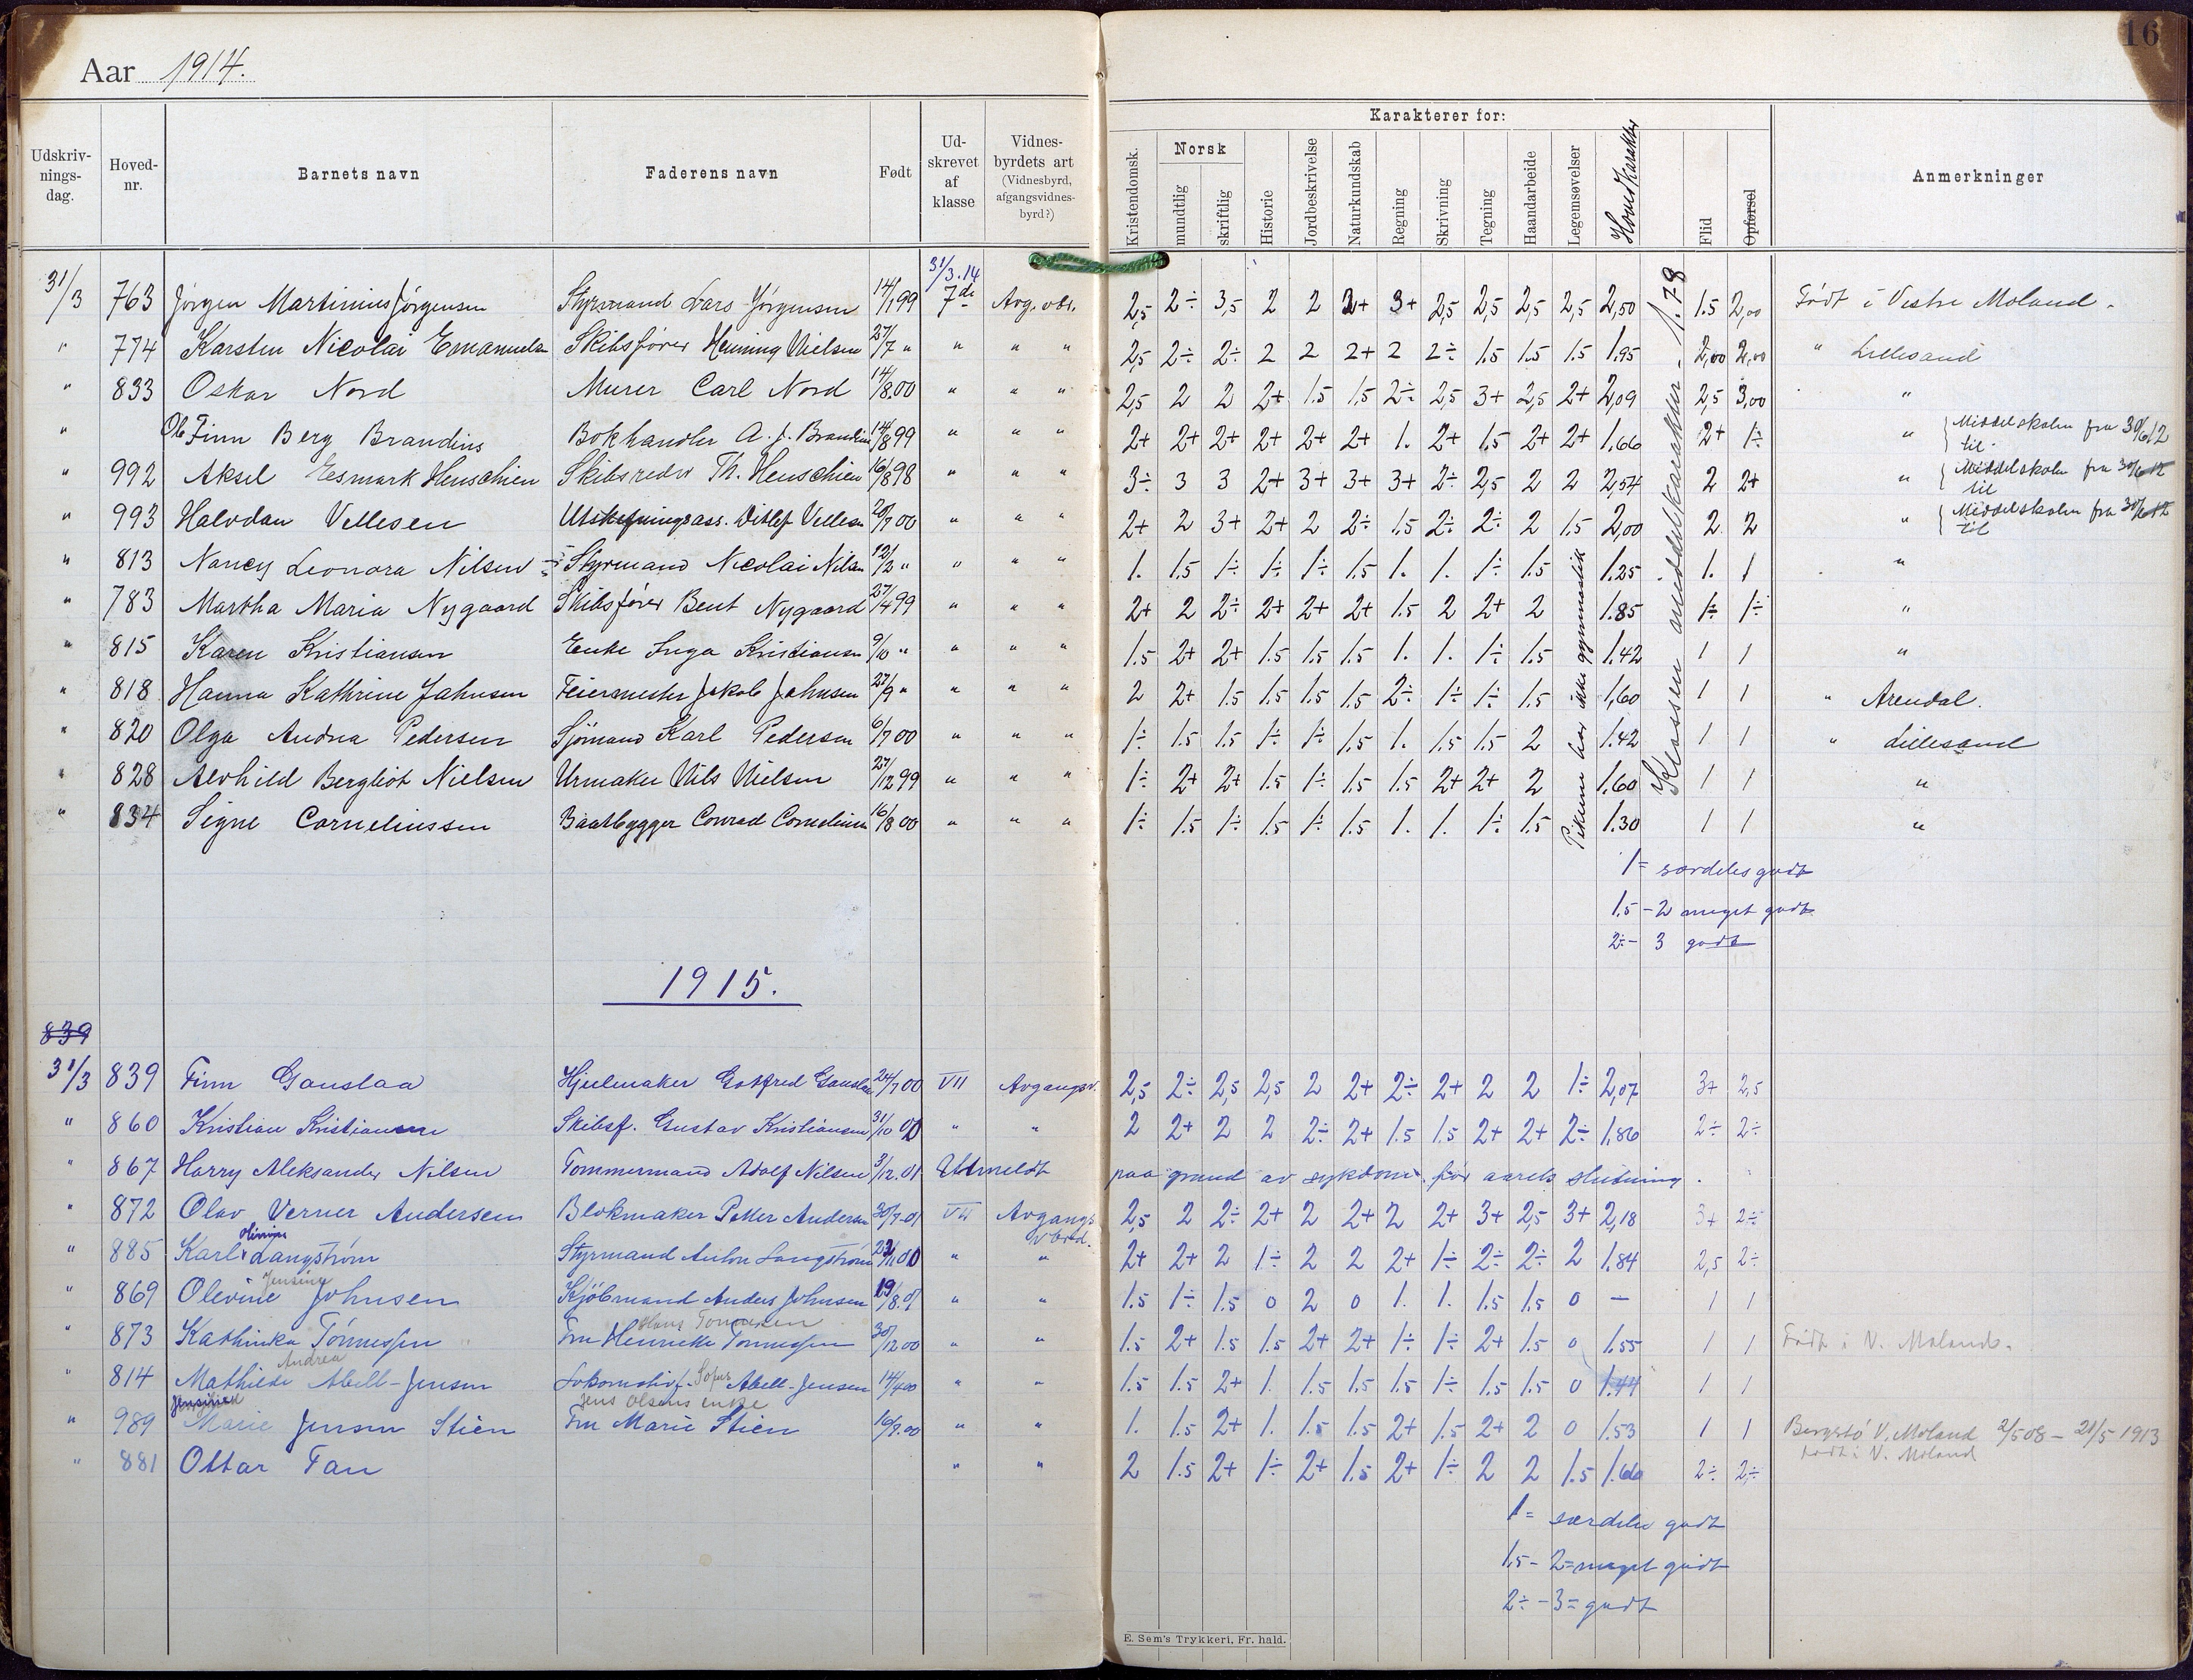 16
Aar 1914.
Karakterer for:
Udskriv-nings-dag. Hoved-nr. Barnets navn Faderens navn Født Ud-skrevet af klasse Vidnes-byrdets art (Vidnesbyrd, afgangsvidnes-byrd?) Kristendomsk. Norsk mundtlig skriftlig Historie Jordbeskrivelse Naturkundskab Regning Skrivning Tegning Haandarbeide Legemsøvelser Hovedkarakter Flid Opførsel Anmerkninger
31/3.14
31/3 763 Jörgen Martinius Jörgensen Styrmand Lars Jörgensen 14/1 99 7de Avg. vbr. 2,5 2÷ 3,5 2 2 2+ 3+ 2,5 2,5 2,5 2,5 2,50 1.5 2,00 Födt i Vestre Moland.
" 774 Karsten Nicolai Emanuel Skibsförer Henning Nielsen 27/7 " " " " 2,5 2÷ 2÷ 2 2 2+ 2 2÷ 1.5 1.5 1.5 1.95 2,00 2,00 " Lillesand
" 833 Oskar Nord Murer Carl Nord 14/8.00 " " " 2,5 2 2 2+ 1.5 1.5 2÷ 2,5 3+ 2,5 2+ 2,09 2,5 3,00 "
" Ole Finn Berg Brandius Bokhandler A. J. Brandius 14/8 99 " " " 2+ 2+ 2+ 2+ 2+ 2+ 1. 2+ 1.5 2+ 2+ 1.66 2+ 1÷ " Middelskolen fra 30/6 12 til
" 992 Aksel Eesmark Henschien Skibsreder Th. Henschien 16/8 98 " " " 3÷ 3 3 2+ 3+ 3+ 3+ 2÷ 2,5 2 2 2,54 2 2+ " Middelskolen fra 30/6 12 til
" 993 Halvdan Vellesen Utskiftningsass. Ditlef Vellesen 20/7 00 " " " 2+ 2 3+ 2+ 2 2÷ 1.5 2÷ 2÷ 2 1.5 2,00 2 2 " Middelskolen fra 30/6 12 til
" 813 Nancy Leonora Nilsen Styrmand Nicolai Nilsen 12/2 " " " " 1. 1.5 1÷ 1÷ 1÷ 1.5 1. 1. 1÷ 1.5 1.25 1. 1 "
" 783 Martha Maria Nygaard Skibsförer Bent Nygaard 27/4 99 " " " 2+ 2 2÷ 2+ 2+ 2+ 1.5 2 2+ 2 1.85 1÷ 1÷ "
" 815 Karen Kristiansen Enke Inga Kristiansen 9/10 " " " " 1.5 2+ 2+ 1.5 1.5 1.5 1. 1. 1÷ 1.5 1.42 1 1 "
" 818 Hanna Kathrine Jahnsen Feiermester Jakob Jahnsen 27/9 " " " " 2 2+ 1.5 1.5 1.5 1.5 2÷ 1÷ 1÷ 1.5 1,60 1 1 " Arendal.
" 820 Olga Andrea Pedersen Sjömand Karl Pedersen 6/7 00 " " " 1÷ 1.5 1.5 1÷ 1÷ 1.5 1. 1.5 1.5 2 1.42 1 1 " Lillesand
" 828 Alvhild Bergliot Nielsen Urmaker Nils Nielsen 27/12 99 " " " 1÷ 2+ 2+ 1.5 1÷ 1.5 1.5 2+ 2+ 2 1.60 1 1 "
" 834 Signe Corneliussen Baatbygger Conrad Cornelius 16/8 00 " " " 1÷ 1.5 1÷ 1.5 1÷ 1.5 1. 1. 1÷ 1.5 1.30 1 1 "
Pikerne har ikke gymnastik
Klassens middelkarakter - 1.78
1 = særdeles godt
1.5 - 2 meget godt
2÷ - 3 godt
1915.
839
31/3 839 Finn Gauslaa Hjulmaker Gotfred Gauslaa 24/7 00 VII Avgangsv. 2,5 2÷ 2,5 2,5 2 2+ 2÷ 2+ 2 2 1÷ 2,07 3+ 2,5
" 860 Kristian Kristiansen Skibsf. Gustav Kristiansen 31/10 00 " " 2 2+ 2 2 2÷ 2+ 1.5 1.5 2+ 2+ 2÷ 1.86 2÷ 2÷
" 867 Harry Aleksander Nilsen Tømmermand Adolf Nilsen 3/12.01 Utmeldt paa grund av sykdom før aarets slutning.
" 872 Olav Verner Andersen Blokmaker Petter Andersen 30/7.01 VII Avgangsvbrd. 2,5 2 2÷ 2+ 2 2+ 2 2+ 3+ 2,5 3+ 2,18 3+ 2÷
" 885 Karl Langström Styrmand Anton Langström 22/11 00 " " 2+ 2+ 2 1÷ 2 2 2+ 1÷ 2÷ 2÷ 2 1.84 2,5 2÷
" 869 Olevine Jensine Johnsen Kjöbmand Anders Johnsen 19/8.01 " " 1.5 1÷ 1.5 0 2 0 1. 1. 1.5 1.5 0 — 1 1
" 873 Kathinka Tönnessen Hans Tönnesen Fru Henrikke Tönnessen 30/12 00 " " 1.5 2+ 1.5 1.5 2+ 2+ 1÷ 1÷ 2+ 1.5 0 1.55 1 1 Födt i V. Moland.
" 814 Mathilde Andrea Abell-Jensen Lokomotivf. Sofus Abell-Jensen 14/4 00 " " 1.5 1.5 2+ 1. 1.5 1.5 1.5 1÷ 1.5 1.5 0 1.44 1 1
" 989 Marie Jensen Stien Jens Olsens enke Fru Marie Stien 16/9.00 " " 1. 1.5 2+ 1. 1.5 1.5 2+ 1.5 2+ 2 0 1.53 1 1 Bergstö V. Moland 2/5 08 - 21/5 - 1913
födt i V. Moland
" 881 Ottar Fan " " 2 1.5 2+ 1÷ 2+ 1.5 2+ 1÷ 2 2 1.5 1.66 2÷ 2÷
1 = særdeles godt
1,5 - 2 = meget godt
2÷ - 3 = godt
E. Sem's Trykkeri, Fr. hald.